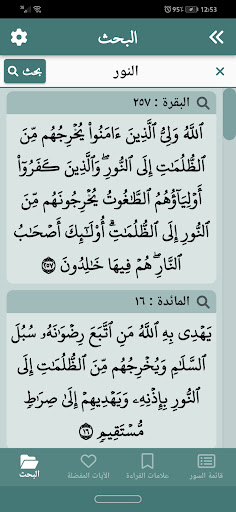 95% 12:53
البحث
النور
بحث
البقرة : ٢٥٧
ٱللَّهُ وَلِيُّ ٱلَّذِينَ ءَامَنُواْ يُخْرِجُهُم مِّنَ
ٱلظُّلُمَٰتِ إِلَى ٱلنُّورِۖ وَٱلَّذِينَ كَفَرُوٓاْ
أَوْلِيَآؤُهُمُ ٱلطَّٰغُوتُ يُخْرِجُونَهُم مِّنَ
ٱلنُّورِ إِلَى ٱلظُّلُمَٰتِۗ أُوْلَٰٓئِكَ أَصْحَٰبُ
ٱلنَّارِۖ هُمْ فِيهَا خَٰلِدُونَ ٢٥٧
المائدة : ١٦
يَهْدِي بِهِ ٱللَّهُ مَنِ ٱتَّبَعَ رِضْوَٰنَهُۥ سُبُلَ
ٱلسَّلَٰمِ وَيُخْرِجُهُم مِّنَ ٱلظُّلُمَٰتِ إِلَى
ٱلنُّورِ بِإِذْنِهِۦ وَيَهْدِيهِمْ إِلَىٰ صِرَٰطٍ
مُّسْتَقِيمٍ ١٦
قائمة السور
علامات القراءة
الآيات المفضلة
البحث